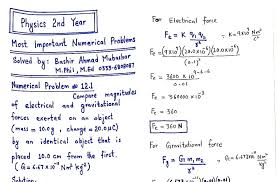 Physics 2nd Year
Most Important Numerical Problems
Solved by: Bashir Ahmad Mubashar
M.Phil, M.Ed
Numerical Problem # 12.1
Compare magnitudes
of electrical and gravitational
forces exerted on an object
(mass = 10.0g, charge = 20.0μC)
by an identical object that is
placed 10.0 cm from the first.
(G = 6.67×10⁻¹¹ Nm² kg⁻²)
Solution:
For Electrical force
Fe = K q₁ q₂ / r²
Fe = 360
Fe = 360 N
For Gravitational force
Fg = G m₁ m₂ / r²